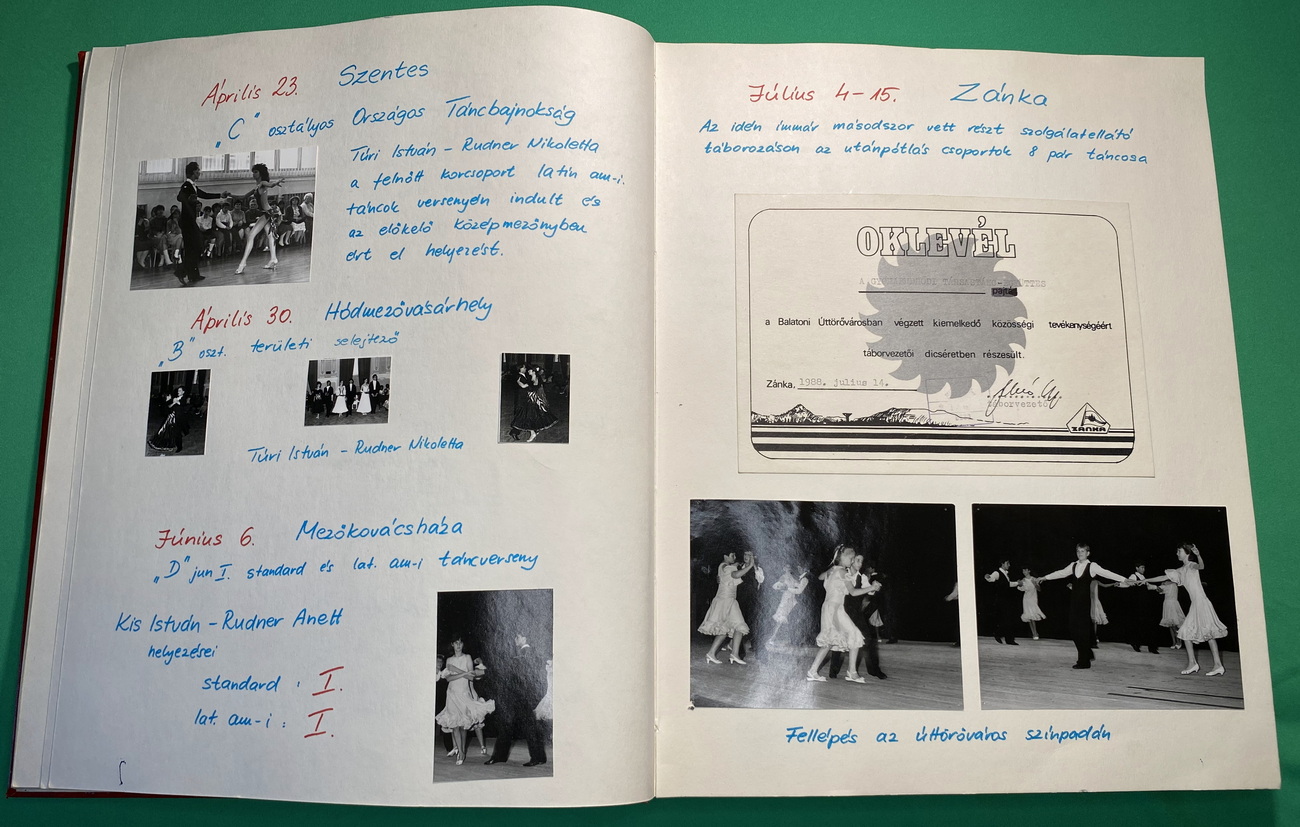 Április 23. Szentes
„C" osztályos Országos Táncbajnokság
Túri István – Rudner Nikoletta
a felnőtt korcsoport latin am-i.
táncok versenyén indult és
az előkelő középmezőnyben
ért el helyezést.
Április 30. Hódmezővásárhely
„B" oszt. területi selejtező
Túri István – Rudner Nikoletta
Június 6. Mezőkovácsháza
„D" jun I. standard és lat. am-i táncverseny
Kis István – Rudner Anett
helyezései
standard : I.
lat. am-i : I.
Július 4–15. Zánka
Az idén immár másodszor vett részt szolgálatellátó
táborozáson az utánpótlás csoportok 8 pár táncosa
OKLEVÉL
pajtás
a Balatoni Úttörővárosban végzett kiemelkedő közösségi tevékenységéért
táborvezetői dicséretben részesült.
Zánka, 1988. julius 14.
táborvezető
ZÁNKA
Fellépés az úttörőváros színpadán